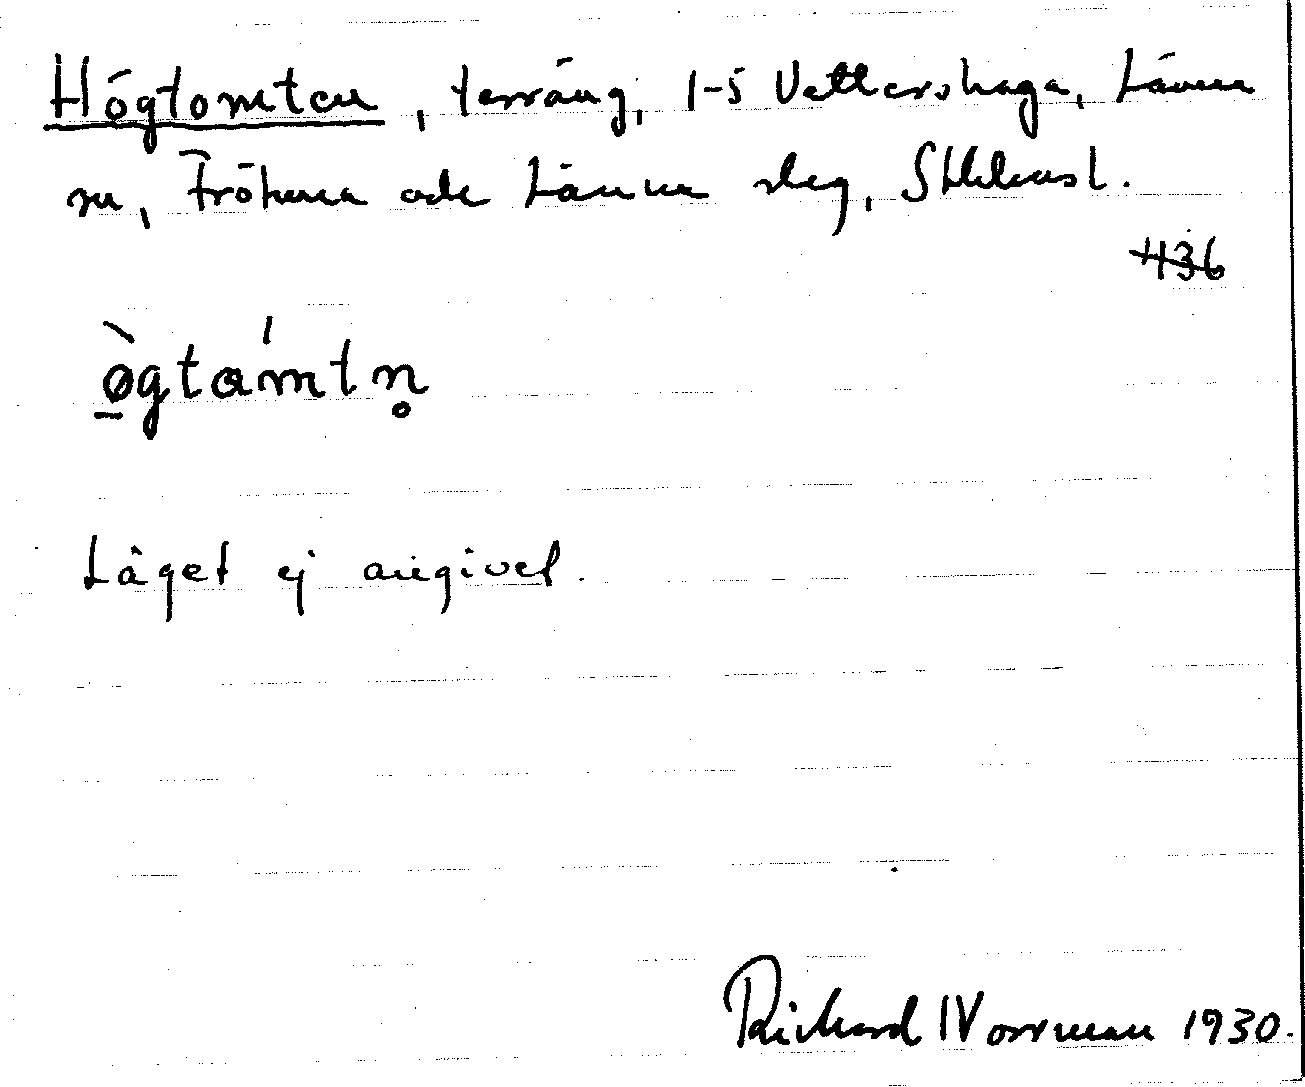 Högtomten, terräng, 1-5 Vettershaga, Länna
sn, Frötuna och Länna slag, Sthlmsl.
436
ò̠gtam̍tn̥
Läget ej angivet.
Richard Norrman 1930.